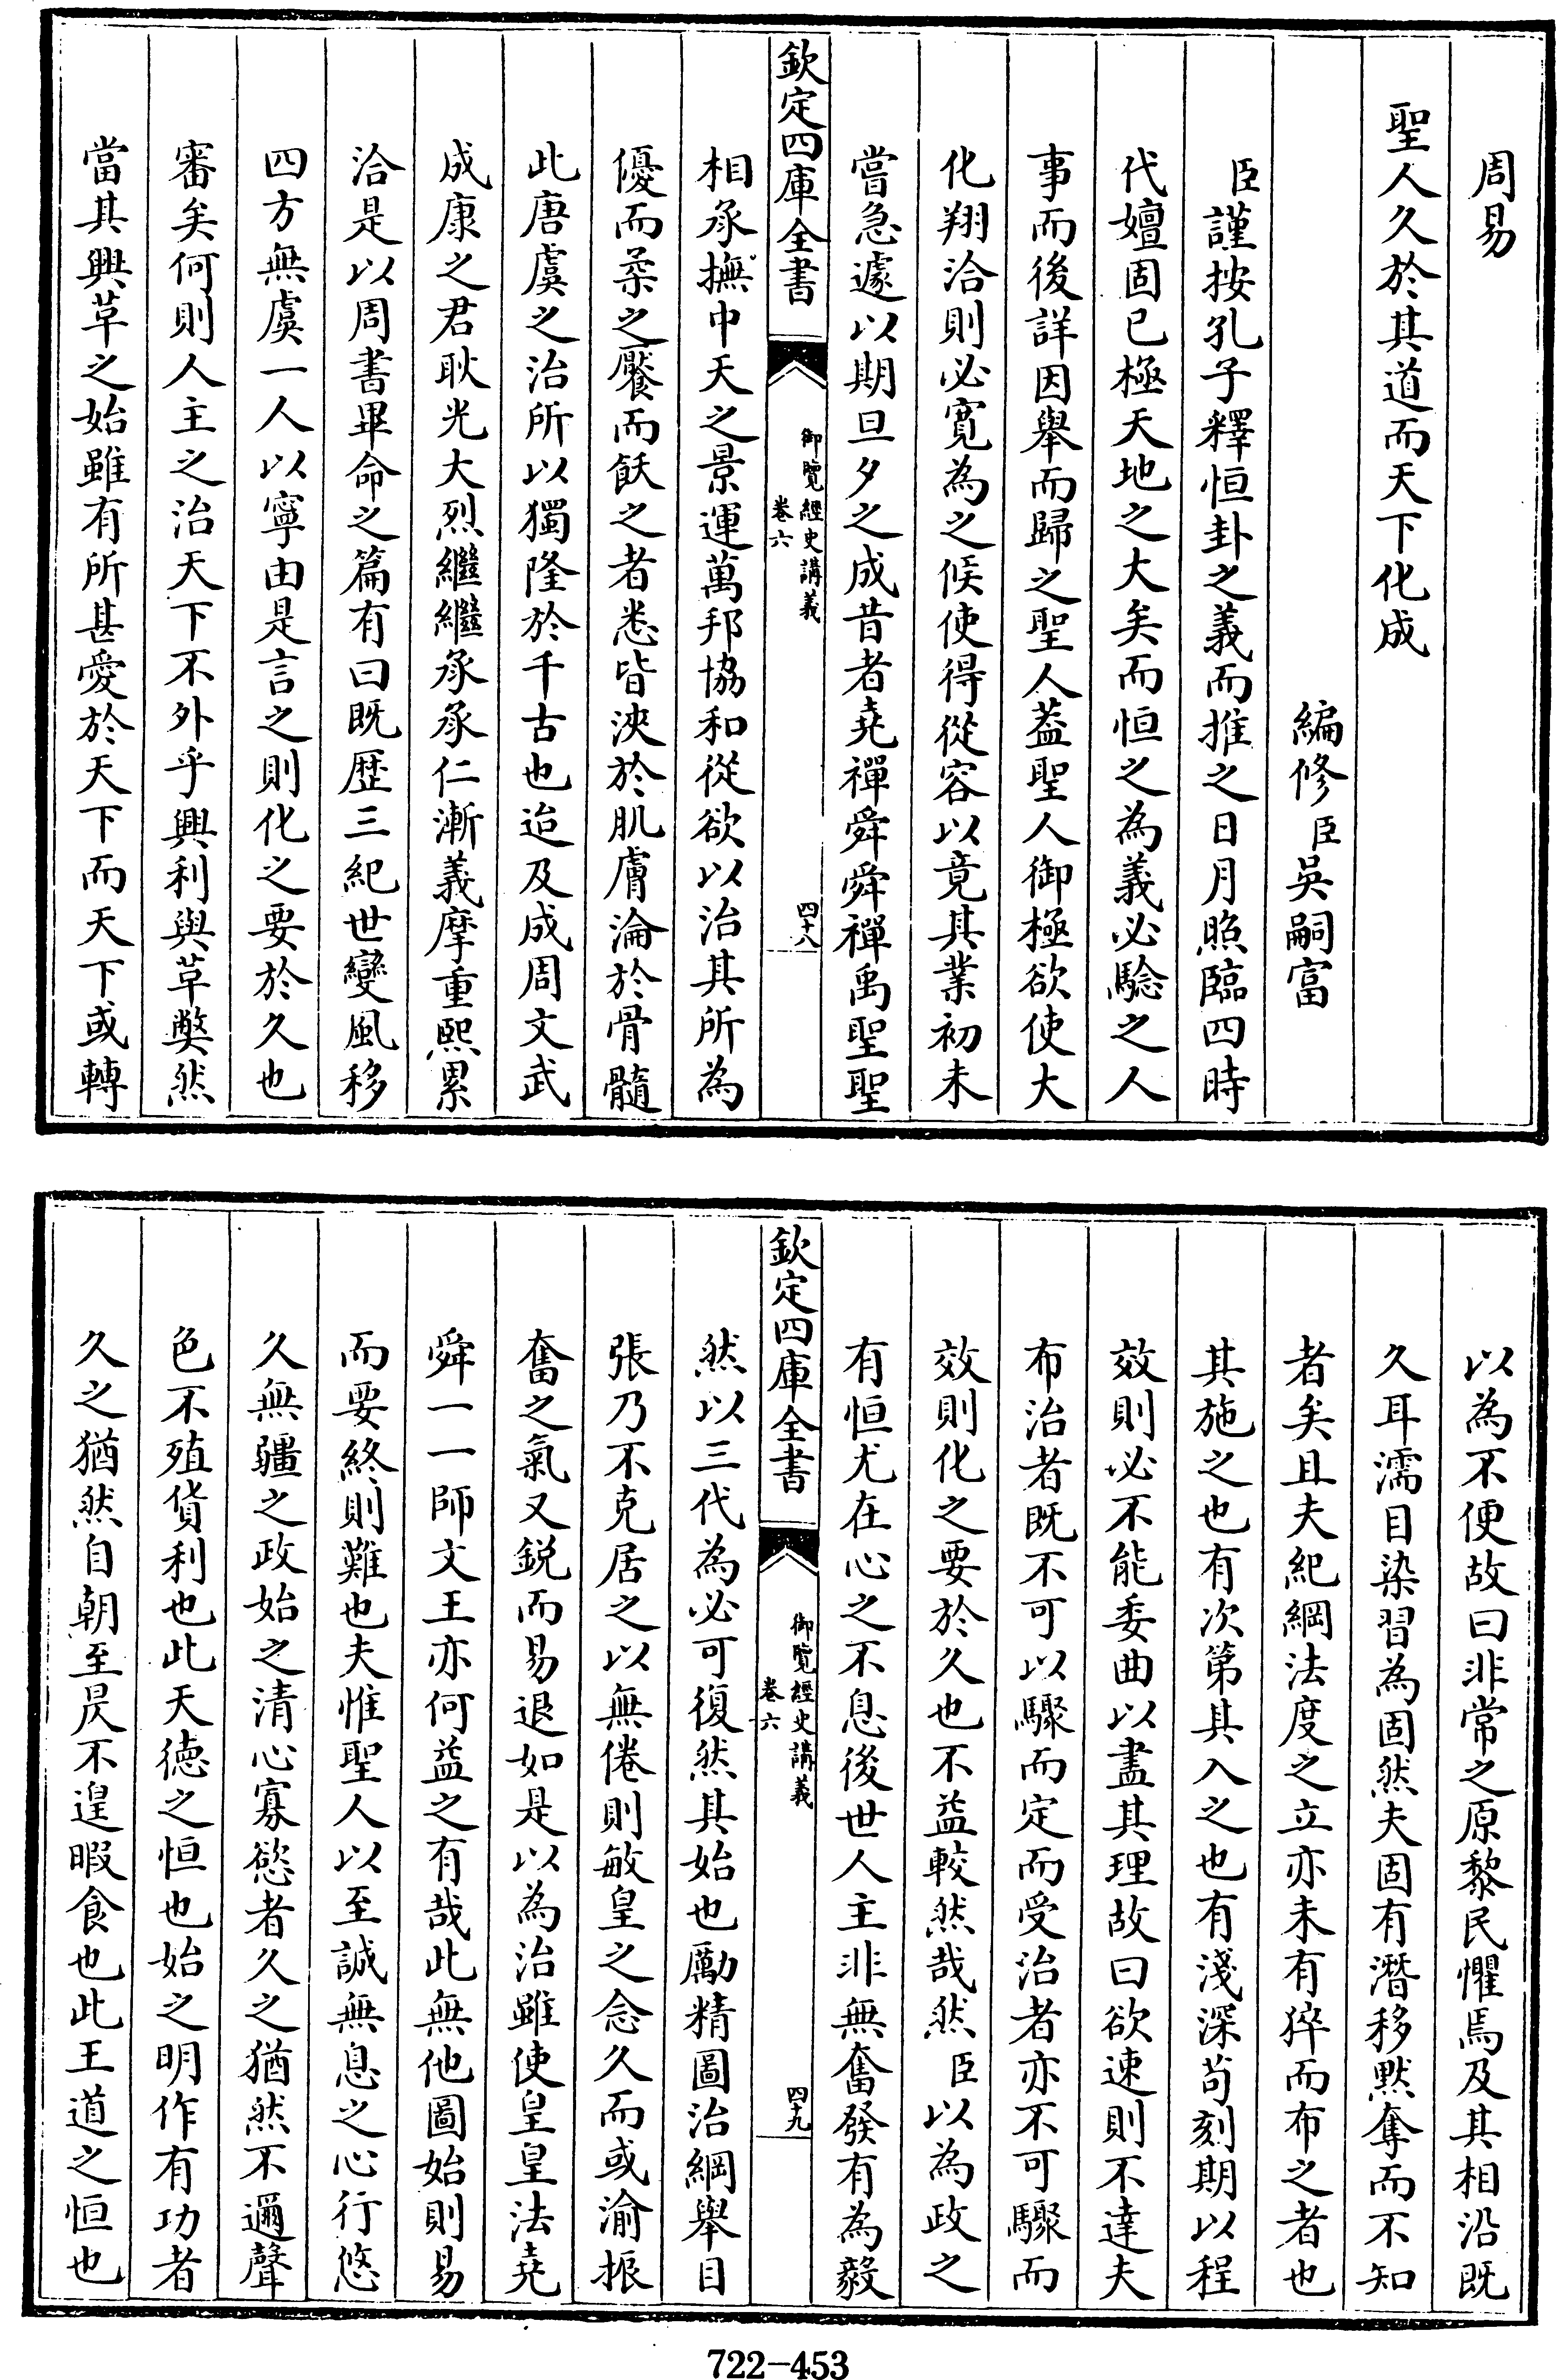 周易
聖人久於其道而天下化成
編修臣吳嗣富
臣謹按孔子釋恒卦之義而推之日月照臨四時
代嬗固已極天地之大矣而恒之為義必驗之人
事而後詳因舉而歸之聖人葢聖人御極欲使大
化翔洽則必寬為之候使得從容以竟其業初未
嘗急遽以期旦夕之成昔者堯禪舜舜禪禹聖聖
欽定四庫全書
御覽經史講義
卷六
四十八
相承撫中天之景運萬邦協和從欲以治其所為
優而柔之饜而飫之者悉皆浹於肌膚淪於骨髓
此唐虞之治所以獨隆於千古也迨及成周文武
成康之君耿光大烈繼繼承承仁漸義摩重熙累
洽是以周書畢命之篇有曰既歷三紀世變風移
四方無虞一人以寧由是言之則化之要於久也
審矣何則人主之治天下不外乎興利與革獘然
當其興革之始雖有所甚愛於天下而天下或轉
以為不便故曰非常之原黎民懼焉及其相沿既
久耳濡目染習為固然夫固有潛移默奪而不知
者矣且夫紀綱法度之立亦未有猝而布之者也
其施之也有次第其入之也有淺深苟刻期以程
效則必不能委曲以盡其理故曰欲速則不達夫
布治者既不可以驟而定而受治者亦不可驟而
效則化之要於久也不益較然哉然臣以為政之
有恒尤在心之不息後世人主非無奮發有為毅
欽定四庫全書
御覽經史講義
卷六
四十九
然以三代為必可復然其始也勵精圖治綱舉目
張乃不克居之以無倦則敏皇之念久而或渝振
奮之氣又銳而易退如是以為治雖使皇皇法堯
舜一一師文王亦何益之有哉此無他圖始則易
而要終則難也夫惟聖人以至誠無息之心行悠
久無疆之政始之清心寡慾者久之猶然不邇聲
色不殖貨利也此天德之恒也始之明作有功者
久之猶然自朝至昃不遑暇食也此王道之恒也
722-453